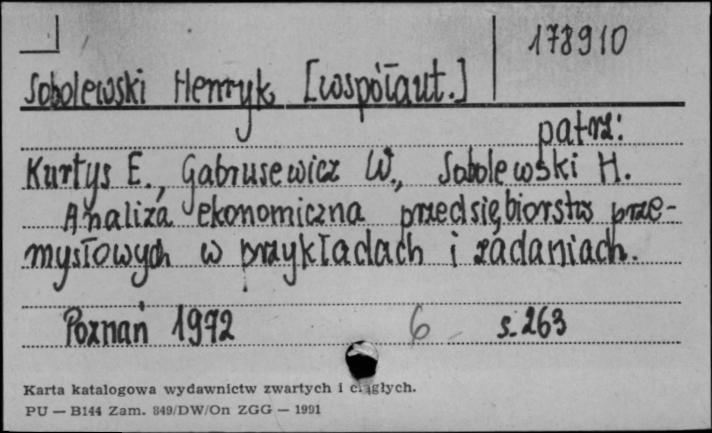 178910
Sobolewski Henryk [współaut.]
patrz:
Kurtys E., Gabrusewicz W., Sobolewski H.
Analiza ekonomiczna przedsiębiorstw prze-
mysłowych w przykładach i zadaniach.
Poznań 1972 6 s. 263
Karta katalogowa wydawnictw zwartych i ciągłych.
PU — B144 Zam. 849/DW/On ZGG — 1991